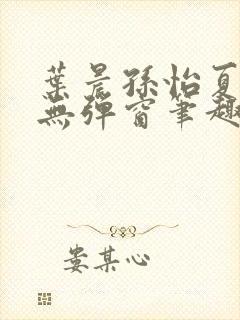 葉晨孫怡夏
無彈窗筆趣
婁某心